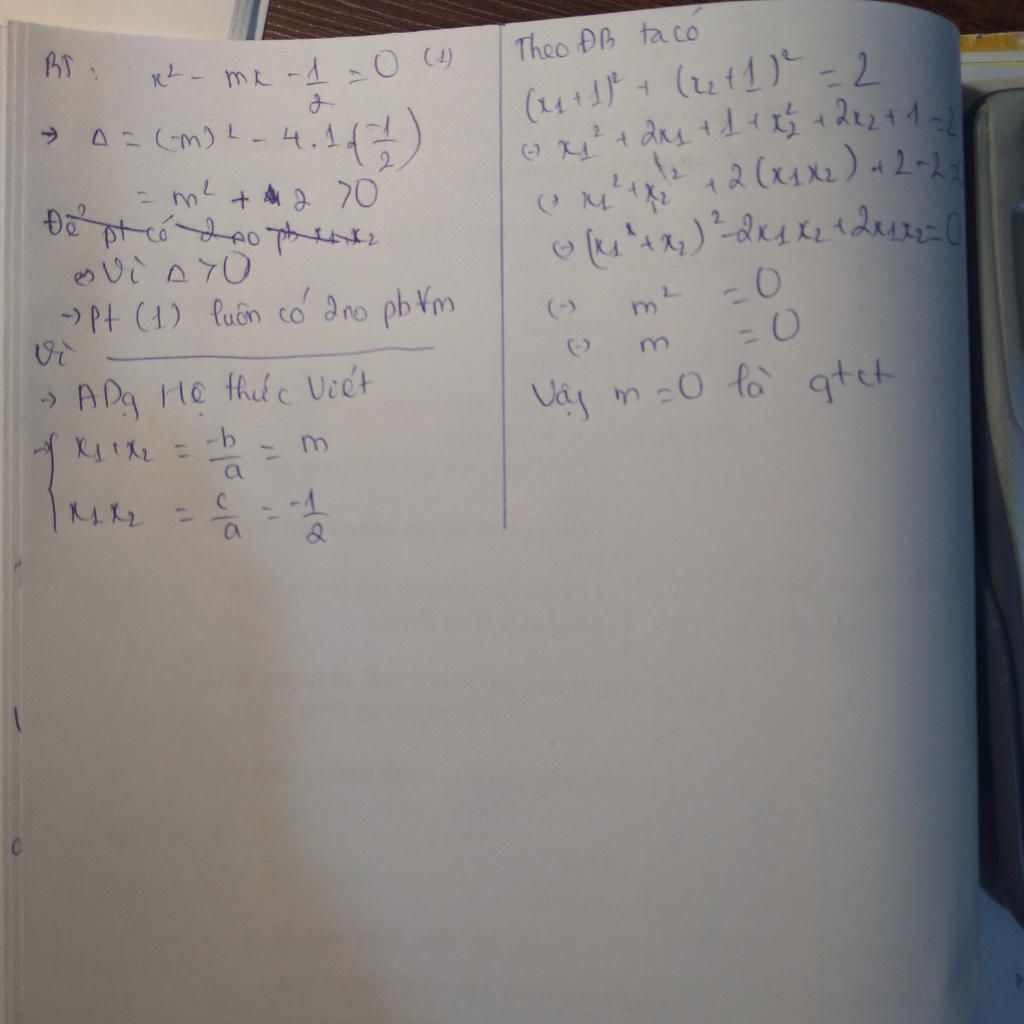 BT : x² - mx - 1/2 = 0 (1)
→ Δ = (-m)² - 4.1.(-1/2)
= m² + 2 > 0
Để pt có 2 no pb x1, x2
⇔ Vì Δ > 0
→ Pt (1) luôn có 2 no pb ∀m
Vì
→ ADg Hệ thức Viét
→ { x1 + x2 = -b/a = m
x1x2 = c/a = -1/2
Theo ĐB ta có
(x1+1)² + (x2+1)² = 2
(-) x1² + 2x1 + 1 + x2² + 2x2 + 1 = 2
(-) x1² + x2² + 2(x1x2) + 2 - 2
(-) (x1 + x2)² - 2x1x2 + 2x1x2 = 0
(-) m² = 0
(-) m = 0
Vậy m = 0 là gtct